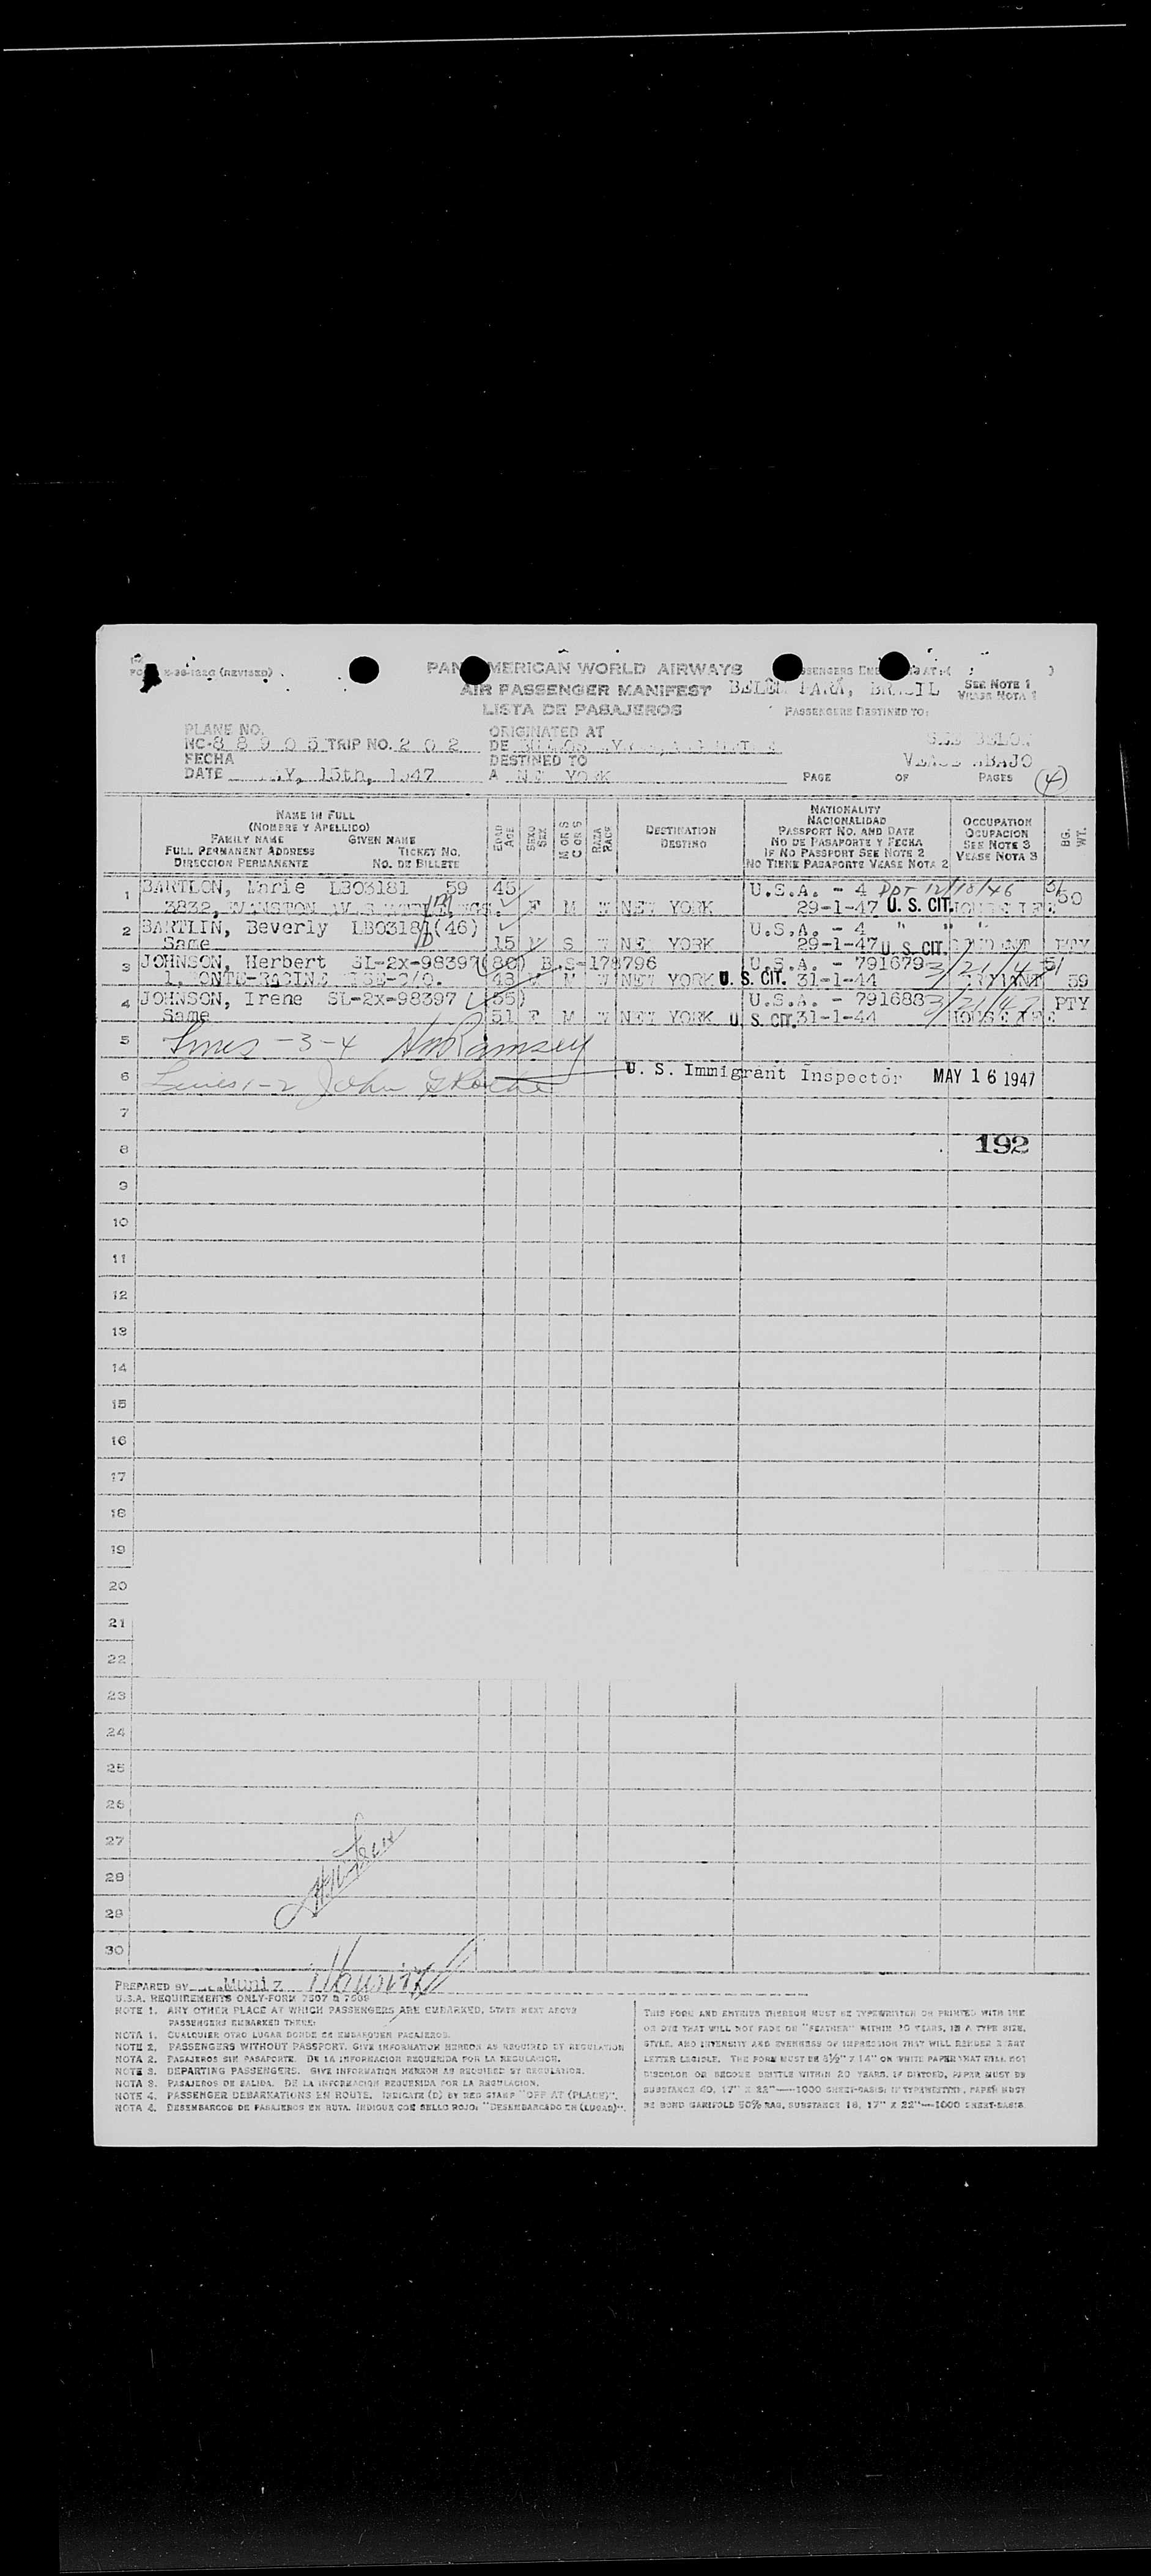 (REVISED)
PAN AMERICAN WORLD AIRWAYS
AIR PASSENGER MANIFEST
BELEM PARA, BRASIL
SEE NOTE 1
VEASE NOTA 1
LISTA DE PASAJEROS
PASSENGERS DESTINED TO:
PLANE NO.
NC-88905 TRIP NO. 202
ORIGINATED AT
DE
SEE BELOW
FECHA
DATE MAY, 15th, 1947
DESTINED TO
A NEW YORK
VEASE ABAJO
PAGE OF PAGES (4)
NAME IN FULL
(NOMBRE Y APELLIDO)
FAMILY NAME GIVEN NAME
FULL PERMANENT ADDRESS TICKET NO.
DIRECCION PERMANENTE NO. DE BILLETE
EDAD
AGE
SEXO
SEX
M OR S
C OR S
RAZA
RACE
DESTINATION
DESTINO
NATIONALITY
NACIONALIDAD
PASSPORT NO. AND DATE
NO DE PASAPORTE Y FECHA
IF NO PASSPORT SEE NOTE 2
NO TIENE PASAPORTE VEASE NOTA 2
OCCUPATION
OCUPACION
SEE NOTE 3
VEASE NOTA 3
BG.
WT.
1 BARTLON, Marie LB03181 59 45 U.S.A. - 4 PPT 12/18/46
3832, F M W NEW YORK 29-1-47 U. S. CIT. HOUSEWIFE 50
2 BARTLIN, Beverly LB03181 (46) U.S.A. - 4 " " "
Same 15 S W NEW YORK 29-1-47 U. S. CIT. STUDENT PTY
3 JOHNSON, Herbert SL-2x-98397 (80) U.S.A. - 791679 3/21/47 51
43 M W NEW YORK U. S. CIT. 31-1-44 59
4 JOHNSON, Irene SL-2x-98397 (55) U.S.A. - 791688 3/21/47 PTY
Same 51 F M W NEW YORK U. S. CIT. 31-1-44 HOUSEWIFE
5 Lines - 3-4 HM Ramsey
6 Lines 1-2 John G Roche U. S. Immigrant Inspector MAY 16 1947
7
8 192
9
10
11
12
13
14
15
16
17
18
19
20
21
22
23
24
25
26
27
28
29
30
PREPARED BY Muniz
U.S.A. REQUIREMENTS ONLY-FORM 7507 & 7509
NOTE 1. ANY OTHER PLACE AT WHICH PASSENGERS ARE EMBARKED, STATE NEXT ABOVE
PASSENGERS EMBARKED THERE:
NOTA 1. CUALQUIER OTRO LUGAR DONDE SE EMBARQUEN PASAJEROS.
NOTE 2. PASSENGERS WITHOUT PASSPORT. GIVE INFORMATION HEREON AS REQUIRED BY REGULATION
NOTA 2. PASAJEROS SIN PASAPORTE. DE LA INFORMACION REQUERIDA POR LA REGULACION.
NOTE 3. DEPARTING PASSENGERS. GIVE INFORMATION HEREON AS REQUIRED BY REGULATION.
NOTA 3. PASAJEROS DE SALIDA. DE LA INFORMACION REQUERIDA POR LA REGULACION.
NOTE 4. PASSENGER DEBARKATIONS EN ROUTE. INDICATE (D) BY RED STAMP "OFF AT (PLACE)".
NOTA 4. DESEMBARCOS DE PASAJEROS EN RUTA. INDIQUE CON SELLO ROJO: "DESEMBARCADO EN (LUGAR)".
THIS FORM AND ENTRIES THEREON MUST BE TYPEWRITTEN OR PRINTED WITH INK
OR DYE THAT WILL NOT FADE OR "FEATHER" WITHIN 20 YEARS, IN A TYPE SIZE,
STYLE, AND INTENSITY AND EVENNESS OF IMPRESSION THAT WILL RENDER EVERY
LETTER LEGIBLE. THE FORM MUST BE 8½" X 14" ON WHITE PAPER THAT WILL NOT
DISCOLOR OR BECOME BRITTLE WITHIN 20 YEARS. IF DITTOED, PAPER MUST BE
SUBSTANCE 40, 17" X 22"—1000 SHEET-BASIS; IF TYPEWRITTEN, PAPER MUST
BE BOND MANIFOLD 50% RAG, SUBSTANCE 16, 17" X 22"—1000 SHEET-BASIS.